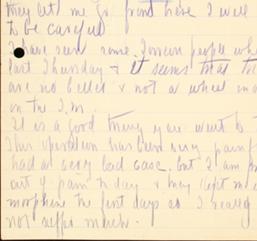 they let me go front here I will
to be careful
I have seen some Twein people wh
last Thursday & it seems that t
are no better & not a wheel in a
in the I.M.
It is a good thing you went to
This operation has been very painf
had a very bad case. but I am f
out of pain today & they kept m
morphine the first days so I really
not suffer much.